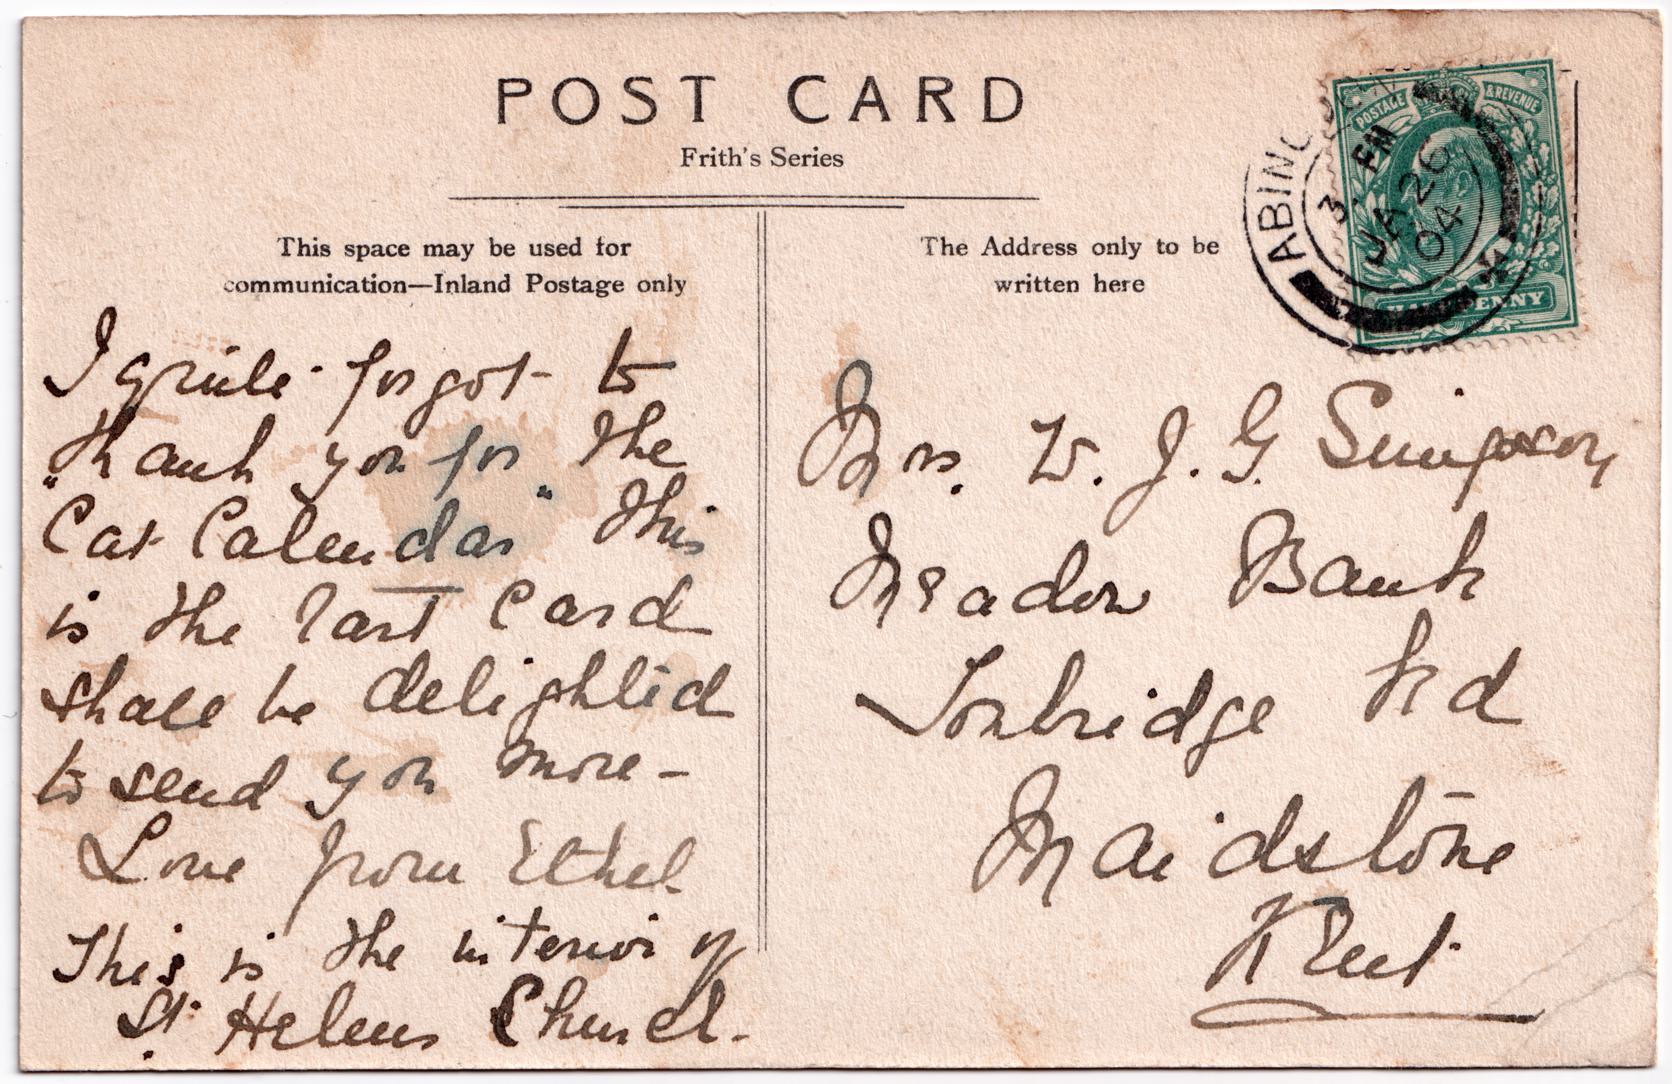 POST CARD
Frith's Series
This space may be used for
communication—Inland Postage only
I quite forgot to
thank you for the
"Cat Calendar" This
is the last card
shall be delighted
to send you more -
Love from Ethel.
This is the interior of
St. Helens Church.
The Address only to be
written here
POSTAGE & REVENUE
HALFPENNY
ABINGDON
3. PM
JA 26
04
Mrs. W. J. G Simpson
Meadow Bank
Tonbridge Rd
Maidstone
Kent